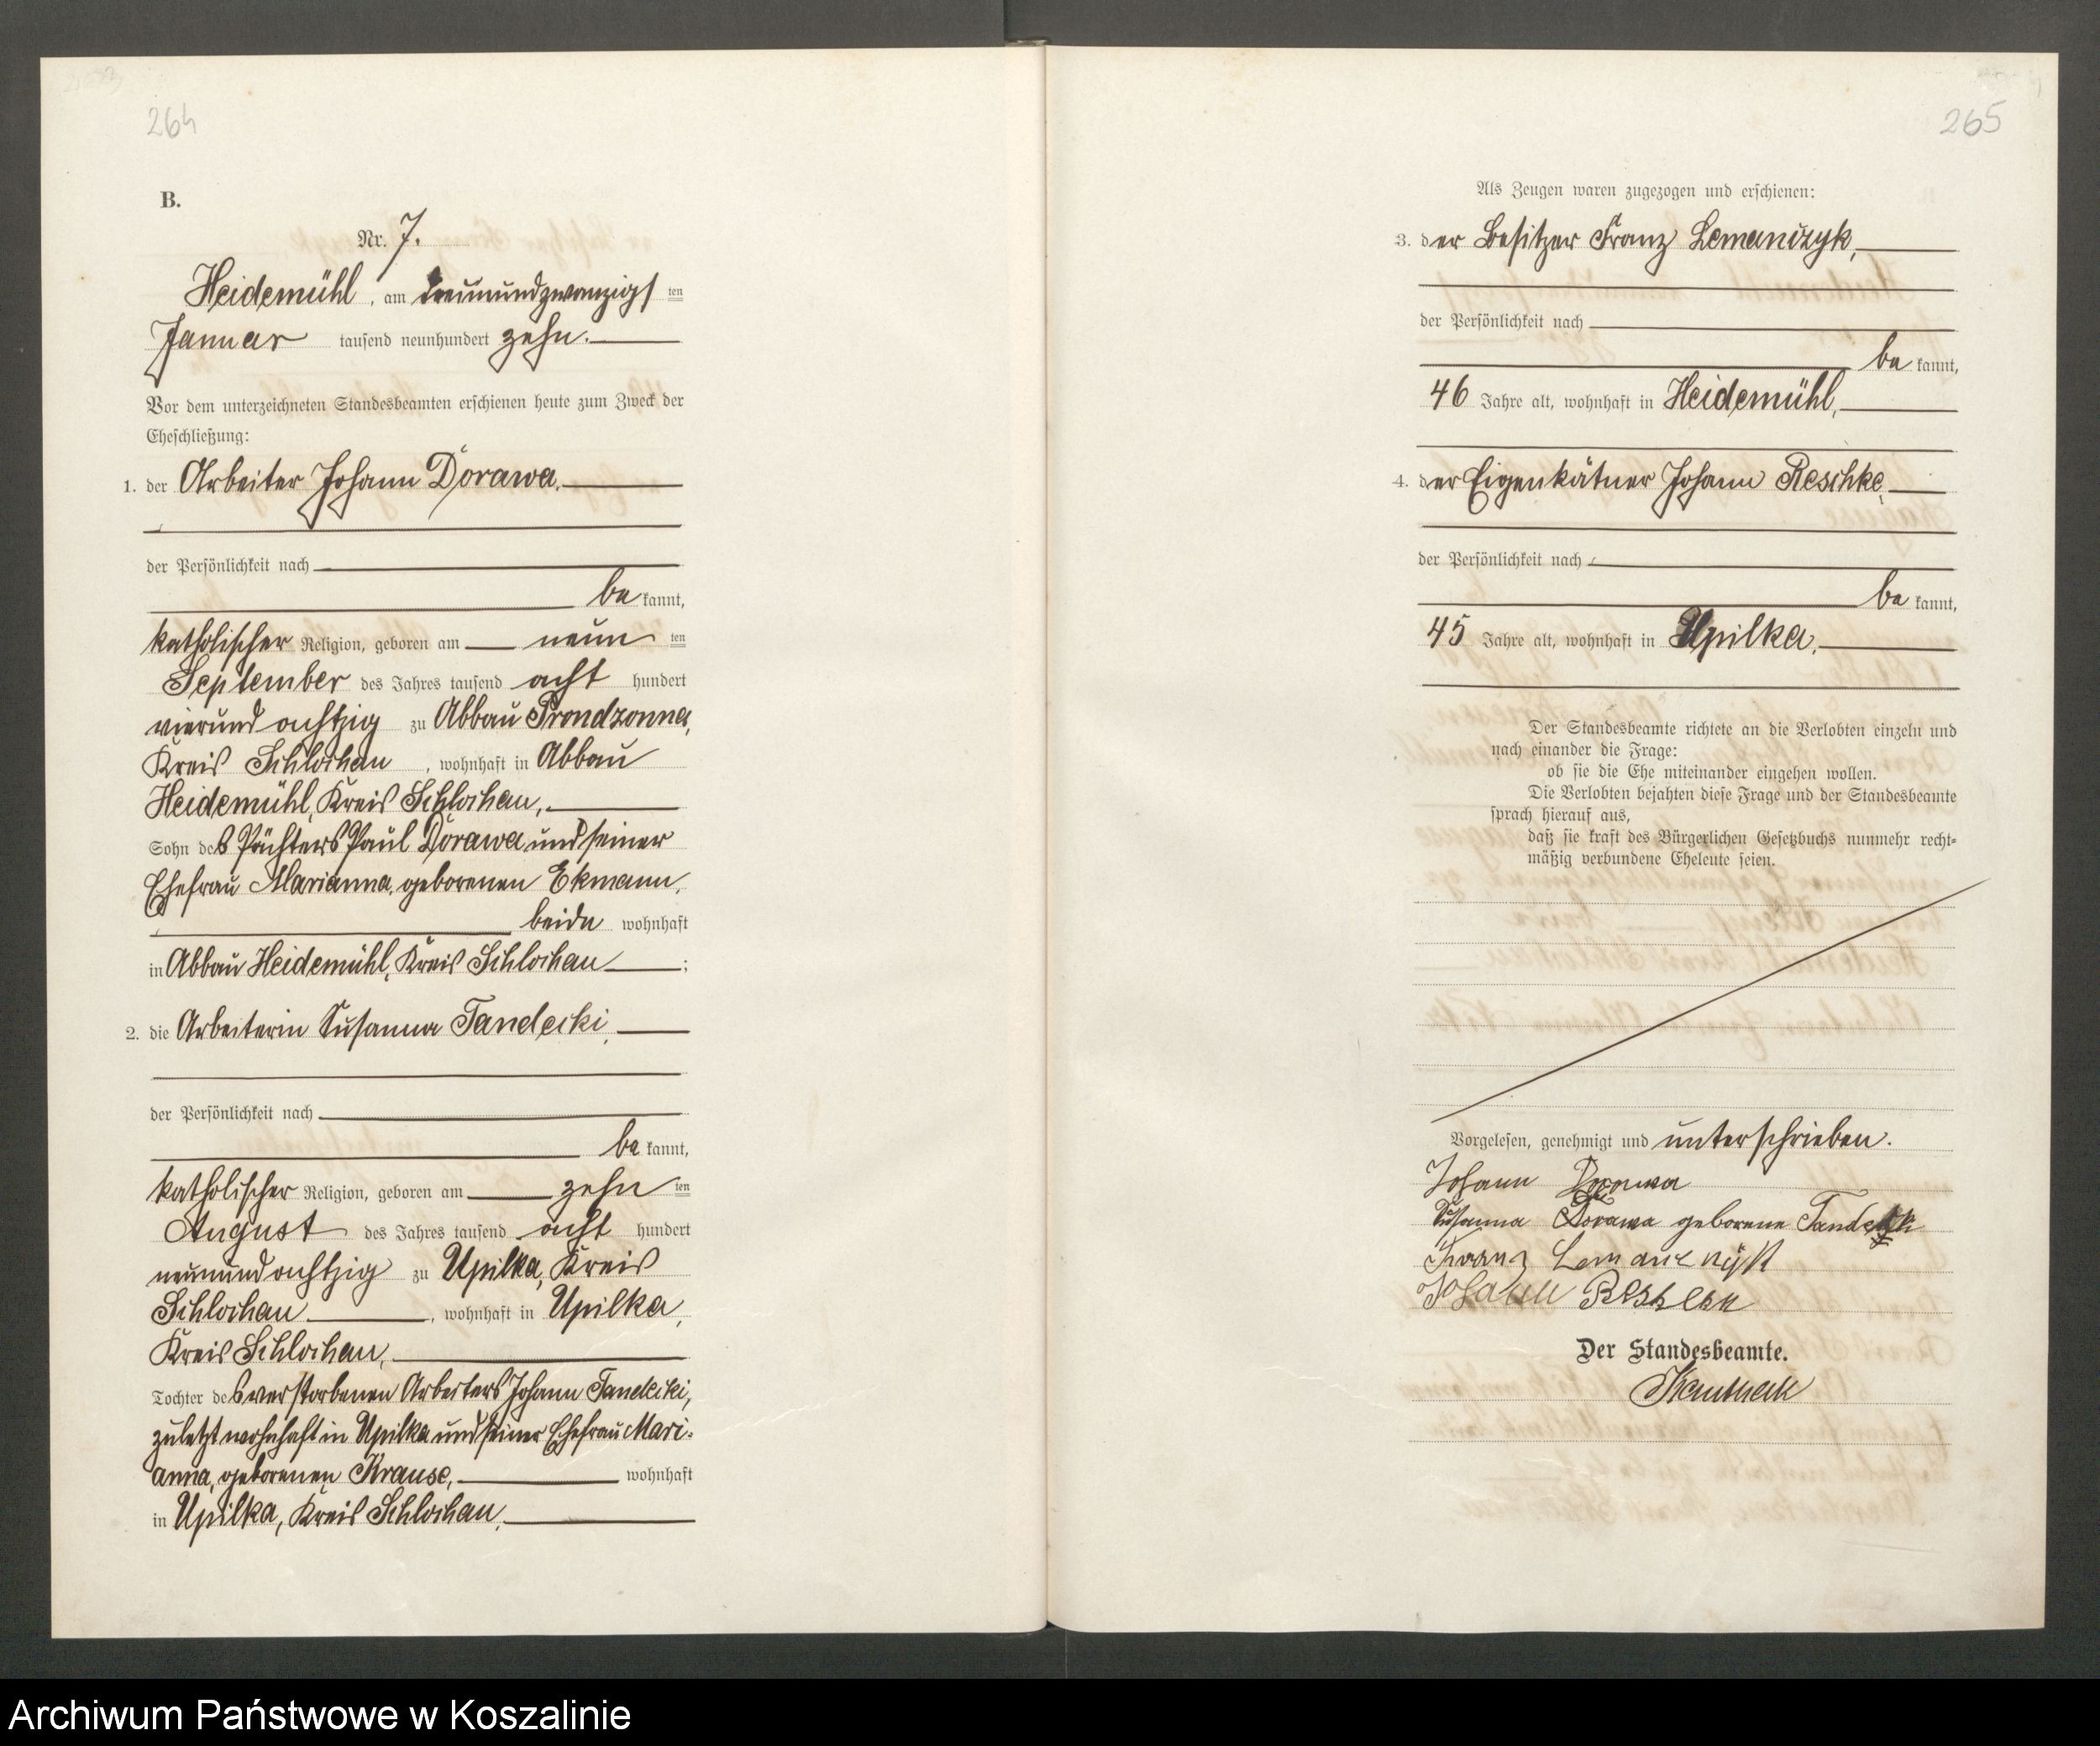 264
B.
Nr. 7.
Heidemühl, am dreiundzwanzigsten
Januar tausend neunhundert zehn.
Vor dem unterzeichneten Standesbeamten erschienen heute zum Zweck der
Eheschließung:
1. der Arbeiter Johann Dorawa,
der Persönlichkeit nach
be kannt,
katholischer Religion, geboren am neun ten
September des Jahres tausend acht hundert
vierundachtzig zu Abbau Prondzonna,
Kreis Schlochau, wohnhaft in Abbau
Heidemühl, Kreis Schlochau,
Sohn des Pächters Paul Dorawa und seiner
Ehefrau Marianna, geborenen Ekmann,
beide wohnhaft
in Abbau Heidemühl, Kreis Schlochau;
2. die Arbeiterin Susanna Tandecki,
der Persönlichkeit nach
be kannt,
katholischer Religion, geboren am zehn ten
August des Jahres tausend acht hundert
neunundachtzig zu Upilka, Kreis
Schlochau, wohnhaft in Upilka,
Kreis Schlochau,
Tochter des verstorbenen Arbeiters Johann Tandecki,
zuletzt wohnhaft in Upilka und seiner Ehefrau Mari-
anna, geborenen Krause, wohnhaft
in Upilka, Kreis Schlochau.
265
Als Zeugen waren zugezogen und erschienen:
3. der Besitzer Franz Lemanczyk,
der Persönlichkeit nach
be kannt,
46 Jahre alt, wohnhaft in Heidemühl,
4. der Eigenkätner Johann Reschke,
der Persönlichkeit nach
be kannt,
45 Jahre alt, wohnhaft in Upilka.
Der Standesbeamte richtete an die Verlobten einzeln und
nach einander die Frage:
ob sie die Ehe miteinander eingehen wollen.
Die Verlobten bejahten diese Frage und der Standesbeamte
sprach hierauf aus,
daß sie kraft des Bürgerlichen Gesetzbuchs nunmehr recht=
mäßig verbundene Eheleute seien.
Vorgelesen, genehmigt und unterschrieben.
Johann Dorawa
Susanna Dorawa geborene Tandecki
Franz Lemanczyk
Johann
Der Standesbeamte.
Archiwum Państwowe w Koszalinie